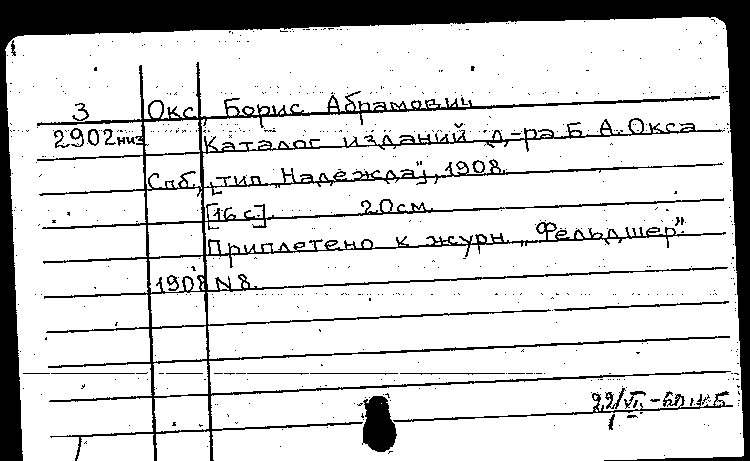 3 Окс, Борис Абрамович
2902 низ Каталог изданий д-ра Б. А. Окса
Спб., [тип. „Надежда"], 1908.
[16 с]. 20см.
Приплетено к журн. „Фельдшер".
1908 N8.
22/VI